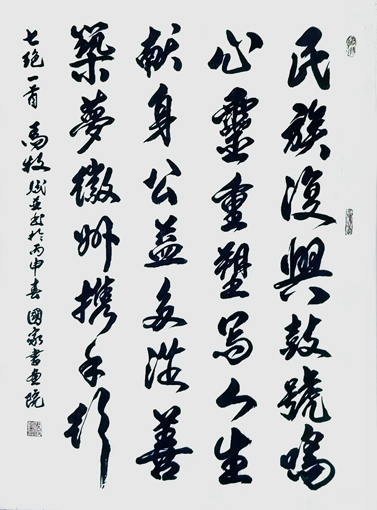 民族復興鼓號鳴
心靈重塑写人生
献身公益多善
築夢徽州携手行
七絶一首 馬牧賦並書於丙申春 國家書畫院